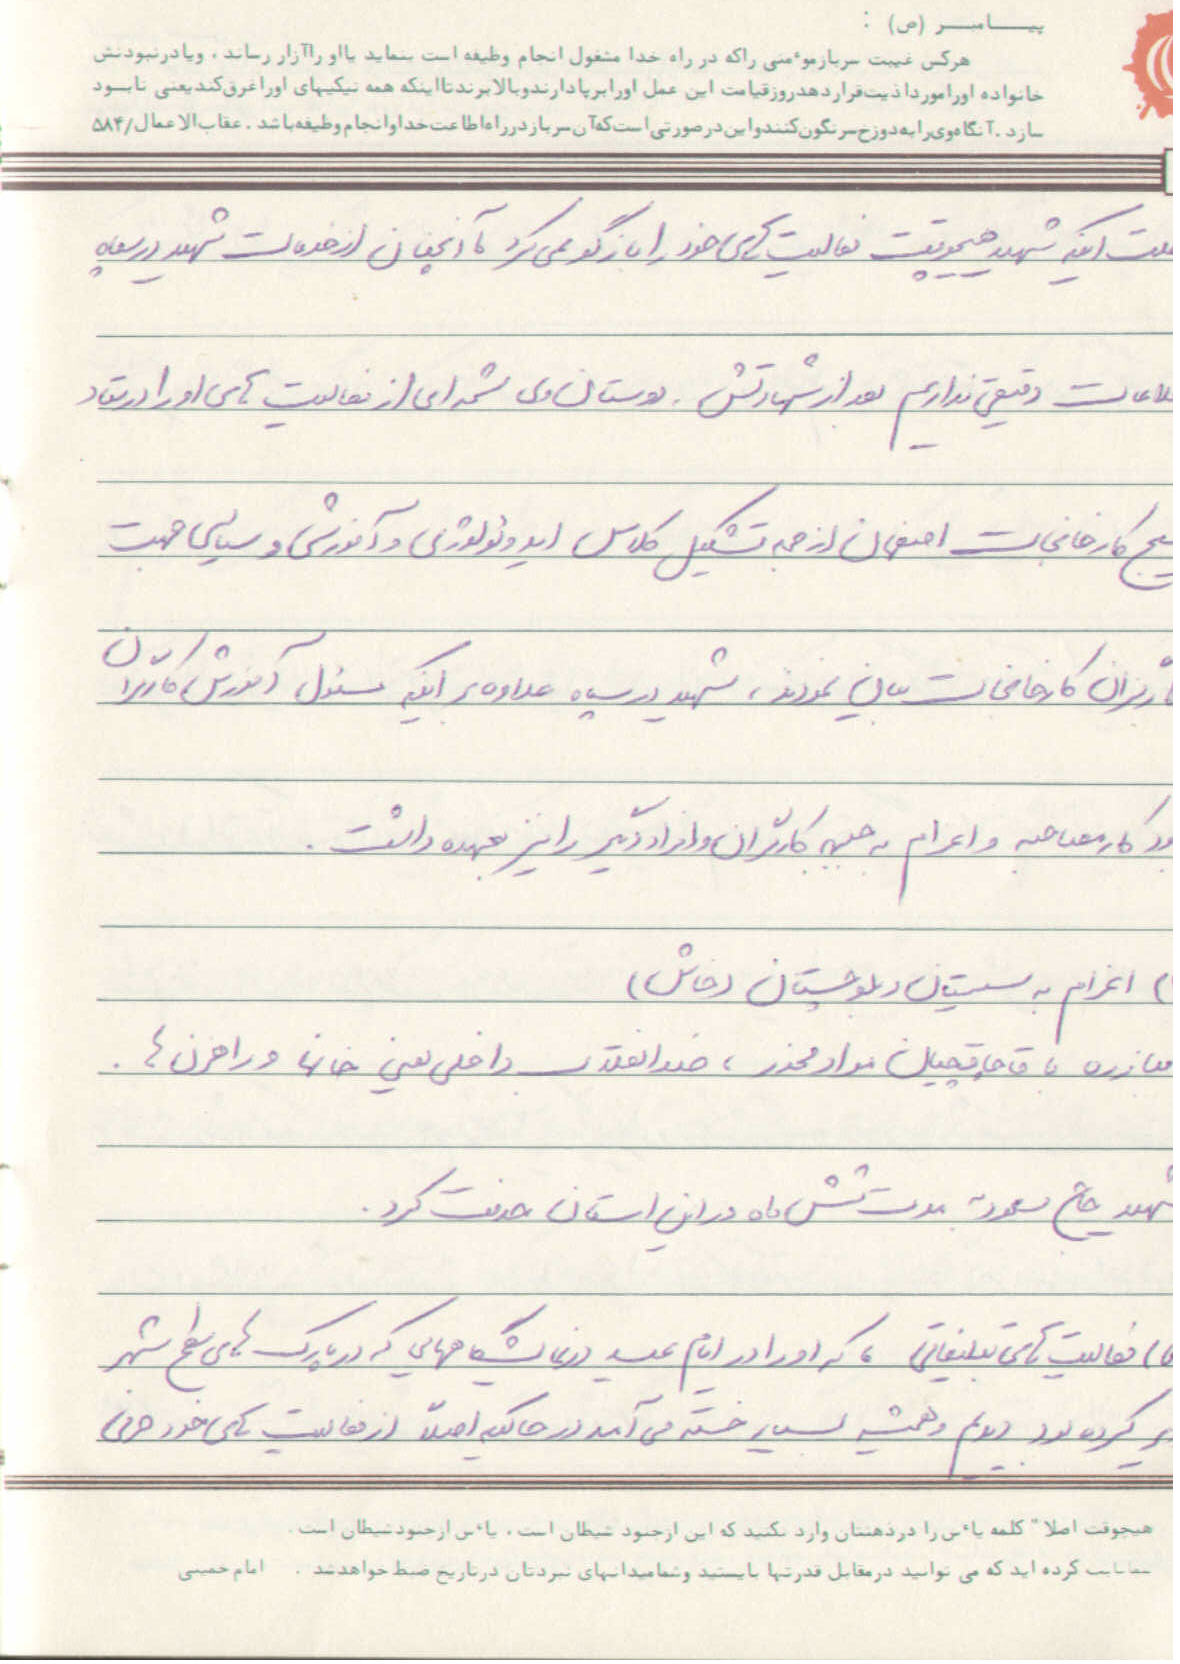 پیـــامبـــر (ص) :
هرکس غیبت سربازموءمنی راکه در راه خدا مشغول انجام وظیفه است بنماید یااو راآزار رساند ، ویادرنبودنش
خانواده اورامورداذیت‌قراردهدروزقیامت این عمل اورابرپادارندوبالابرندتااینکه همه نیکیهای اوراغرق‌کندیعنی نابـود
سازد .آنگاه‌وی‌رابه‌دوزخ‌سرنگون‌کنندواین‌درصورتی‌است‌که‌آن‌سربازدرراه‌اطاعت‌خداوانجام‌وظیفه‌باشد . عقاب‌الاعمال/۵۸۴
علت اینکه شهید هیچوقت فعالیت های خود را بازگو نمی کرد ما آنچنان از خدمات شهید در سپاه
اطلاعات دقیقی نداریم بعد از شهادتش . دوستان وی شمه ای از فعالیت های او را در ستاد
بسیج کارخانجات اصفهان از جمله تشکیل کلاس ایدئولوژی و آموزشی و سیاسی جهت
کارگران کارخانجات بیان نمودند ، شهید در سپاه علاوه بر اینکه مسئول آموزش کارگران
بود کار مصاحبه و اعزام به جبهه کارگران و افراد دیگر را نیز بعهده داشت .
) اعزام به سیستان و بلوچستان (خاش)
مبارزه با قاچاقچیان مواد مخدر ، ضد انقلاب داخلی یعنی خانها و راهزن ها .
شهید حاج مسعود مدت شش ماه در این استان خدمت کرد .
) فعالیت های تبلیغاتی ، که او را در ایام عید در نمایشگاههایی که در پارک های سطح شهر
کرده بود دیدم و همیشه بسیار خسته می آمد در حالیکه اصلاً از فعالیت های خود حرفی
هیچوقت اصلا" کلمه یاءس را درذهنتان وارد نکنید که این ازجنود شیطان است ، یاءس ازجنودشیطان است .
کرده اید که می توانید درمقابل قدرتها بایستید وشمامیدانهای نبردتان درتاریخ ضبط خواهدشد . امام خمینی